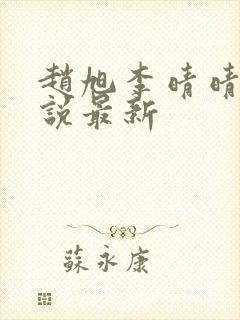 趙旭李晴晴
說最新
蘇永康